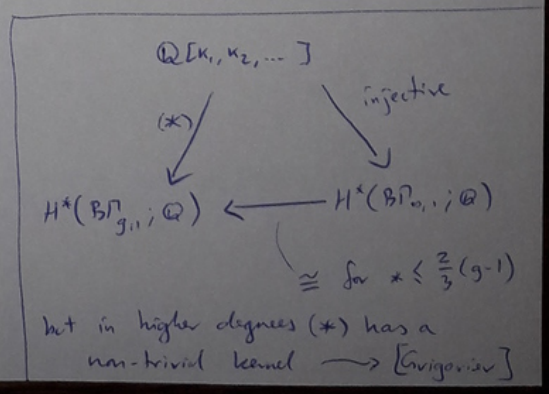 Q[κ₁, κ₂, ...]
(*)
injective
H*(BΓ_{g,1}; Q) ← H*(BΓ_{∞,1}; Q)
≅ for * ≤ 2/3 (g-1)
but in higher degrees (*) has a
non-trivial kernel → [Grigoriev]